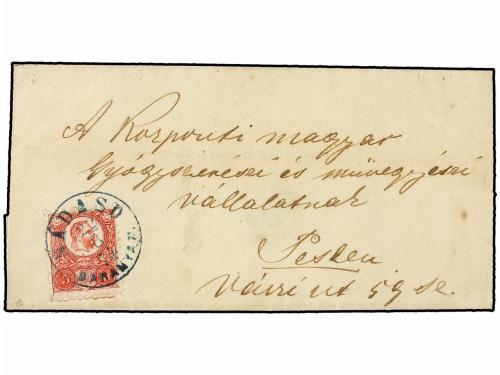 A Központi magyar
Gyógyszerészi és művegyészi
vállalatnak
Pesten
Váczi ut 59 sz.
ÁDASD
BARANYAM.
5